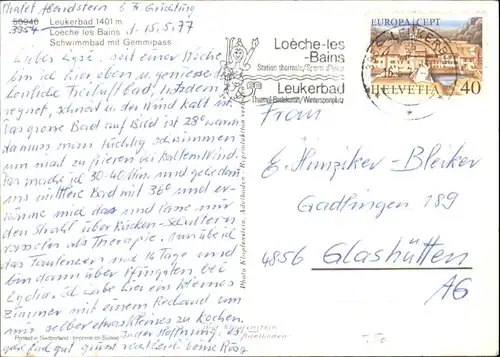 Chalet Abendstern b. Fr. Grichting
39946 Leukerbad 1401 m
3954 Loèche les Bains d. 15.5.77
Schwimmbad mit Gemmipass
Liebes Lysi, seit einer Woche
bin ich hier oben u. geniesse das
herrliche Freiluftbad, trotzdem
regnet, schneit u. der Wind kalt ist.
Das grosse Bad auf Bild ist 28° warm
da muss man tüchtig schwimmen
um nicht zu frieren bei kaltem Wind.
Das mache ich 30-40 Min und gehe dann
ins mittlere Bad mit 36° und
wärme mich da und lasse mir
den Strahl über Rücken-Schultern
als Therapie. Nun übe ich
das Faulenzen noch 14 Tage und
bin dann über Pfingsten bei
Lydia. Ich habe hier ein kleines
Zimmer mit einem Rechaud um
mir selber etwas Kleines zu kochen.
In der Hoffnung, es
gehe Euch gut grüsst recht lieb beine Rosy
Printed in Switzerland - Imprimé en Suisse
Photo Klopfenstein, Adelboden - Reproduktion verboten
Loèche-les
-Bains
Station thermale/Sports d'hiver
Leukerbad
Thermal-Badekurort/Wintersportplatz
EUROPA CEPT
HELVETIA 40
3954 LEUKERBAD
Frau
E. Hunziker-Bleiker
Gadlingen 189
4856 Glashütten
AG